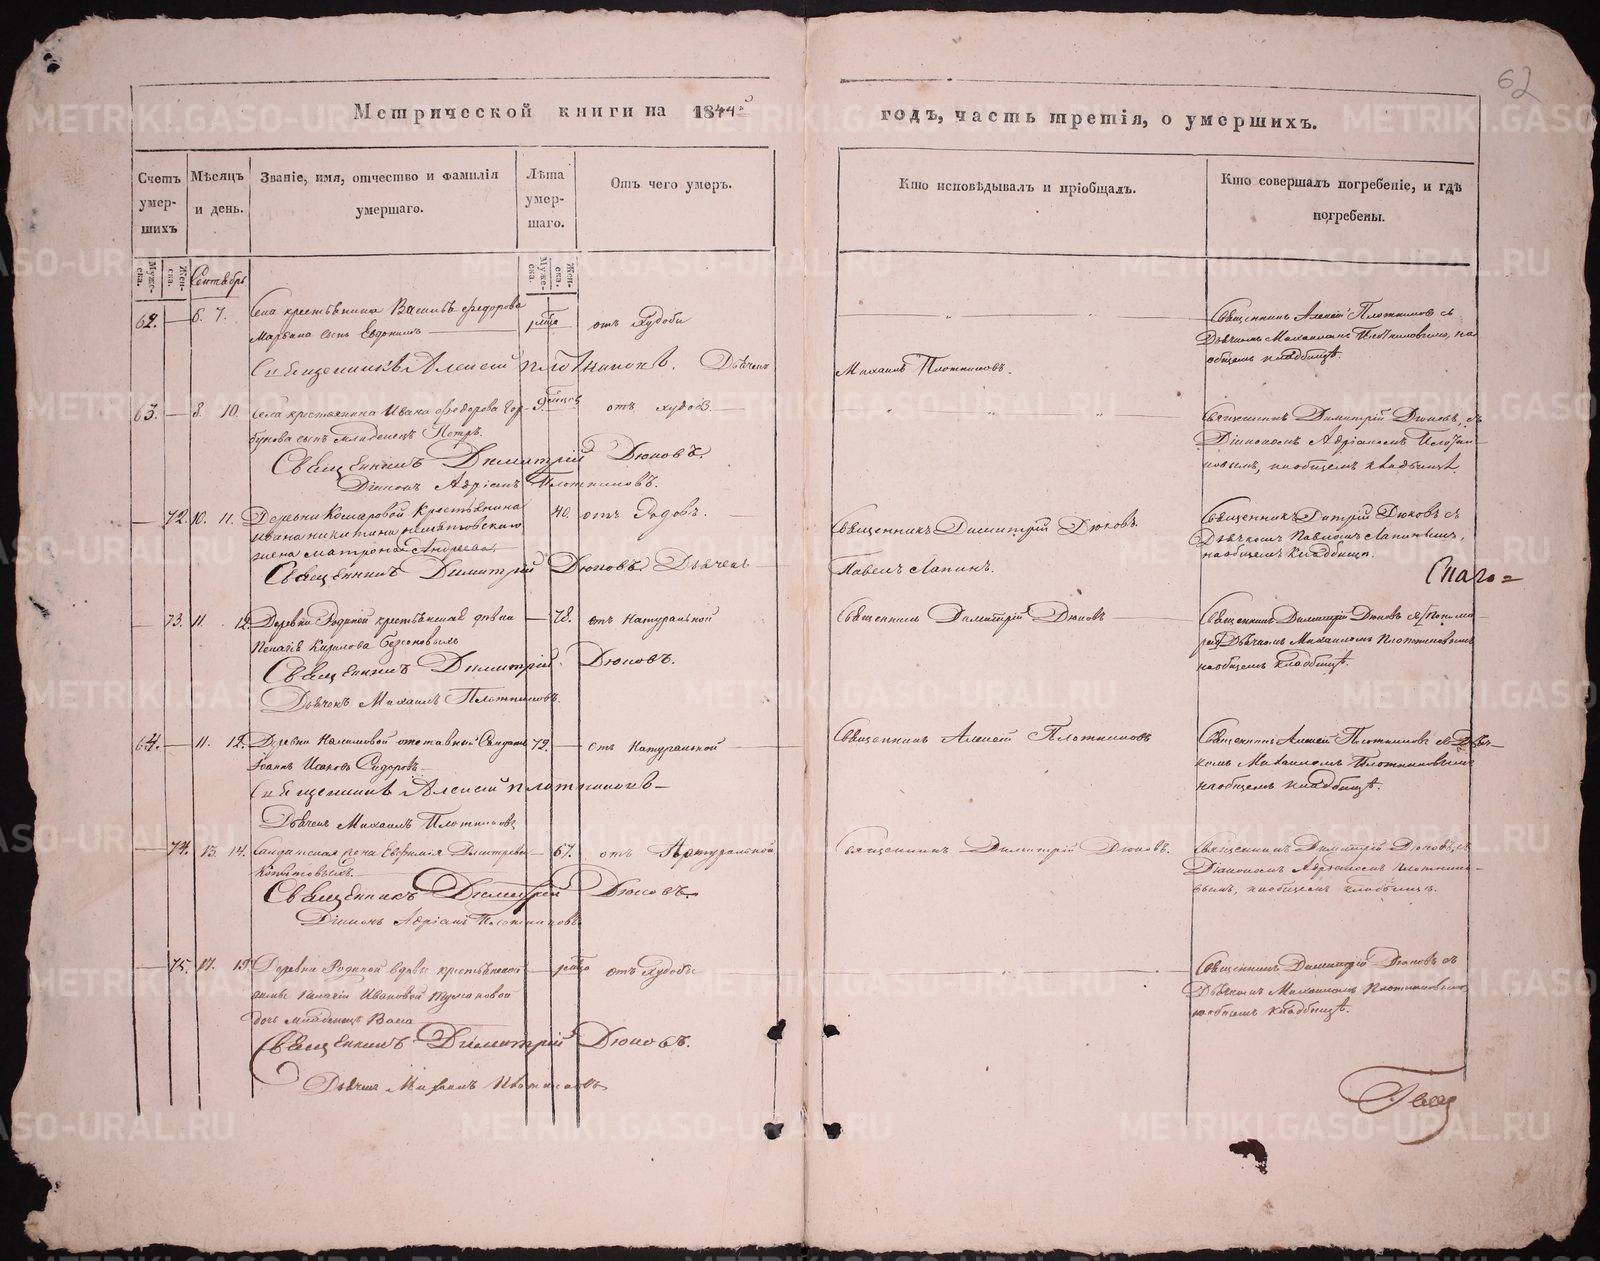 62
Метрической книги на 1844й
годъ, часть третія, о умершихъ.
Счетъ умер-шихъ
Мѣсяцъ и день.
Званіе, имя, отчество и фамилія умершаго.
Лѣта умер-шаго.
Отъ чего умеръ.
Кто исповѣдывалъ и пріобщалъ.
Кто совершалъ погребеніе, и гдѣ погребены.
Мужеска.
Женска.
Сентябрь
Мужеска.
Женска.
62. — 6. 7. Села крестьянина Василья Федорова
сынъ
отъ худобы
Священникъ Алексѣй Плотниковъ съ
Дьячкомъ Михаиломъ Плотниковымъ, на
общемъ кладбищѣ.
Священникъ Алексѣй Плотниковъ. Дьячекъ
Михаилъ Плотниковъ.
63. — 8. 10. Села крестьянина Ивана Федорова Гор-
бунова сынъ младенецъ Петръ.
отъ худобы
Священникъ Димитрій Дюковъ, съ
Діакономъ Адріаномъ Плотни-
ковымъ, на общемъ кладбищѣ
Священникъ Димитрій Дюковъ.
Діаконъ Адріанъ Плотниковъ.
— 72. 10. 11. Деревни Комаровой крестьянина
Ивана Никитина
жена Матрона Андреева
40. отъ родовъ.
Священникъ Димитрій Дюковъ.
Священникъ Дмитрій Дюковъ съ
Дьячкомъ Павломъ Лапинымъ,
на общемъ кладбищѣ.
Священникъ Димитрій Дюковъ Дьячекъ
Павелъ Лапинъ.
— 73. 11. 12. Деревни Родиной крестьянская дѣвка
Пелагія Кирилова
— 78. отъ натуральной
Священникъ Димитрій Дюковъ
Священникъ Димитрій Дюковъ съ
Дьячкомъ Михаиломъ Плотниковымъ
на общемъ кладбищѣ.
Священникъ Димитрій Дюковъ.
Дьячекъ Михаилъ Плотниковъ.
64. — 11. 12. Деревни Налимовой отставный Солдатъ
Іоаннъ Исаковъ Сидоровъ
72. — отъ натуральной
Священникъ Алексѣй Плотниковъ
Священникъ Алексѣй Плотниковъ съ Дьяч-
комъ Михаиломъ Плотниковымъ
на общемъ кладбищѣ.
Священникъ Алексѣй Плотниковъ
Дьячекъ Михаилъ Плотниковъ
— 74. 13. 14. Солдатская жена Евфимія Дмитрева
Копытовыхъ.
— 67. отъ натуральной
Священникъ Димитрій Дюковъ.
Священникъ Димитрій Дюковъ, съ
Діакономъ Адріаномъ Плотнико-
вымъ, на общемъ кладбищѣ.
Священникъ Димитрій Дюковъ.
Діаконъ Адріанъ Плотниковъ
— 75. 17. 19. Деревни Родиной вдовы крестьянской
Ивановой
дочь младенецъ Васса
отъ худобы
Священникъ Димитрій Дюковъ съ
Дьячкомъ Михаиломъ Плотниковымъ
на общемъ кладбищѣ.
Священникъ Димитрій Дюковъ.
Дьячекъ Михаилъ Плотниковъ
METRIKI.GASO-URAL.RU